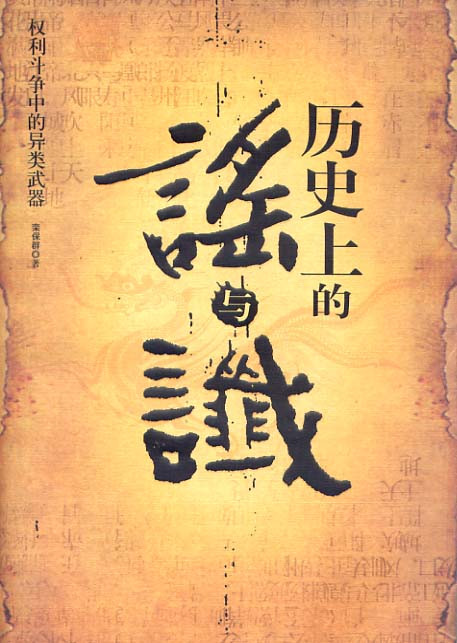 历史上的
謠
与
讖
权利斗争中的异类武器
栾保群◎著